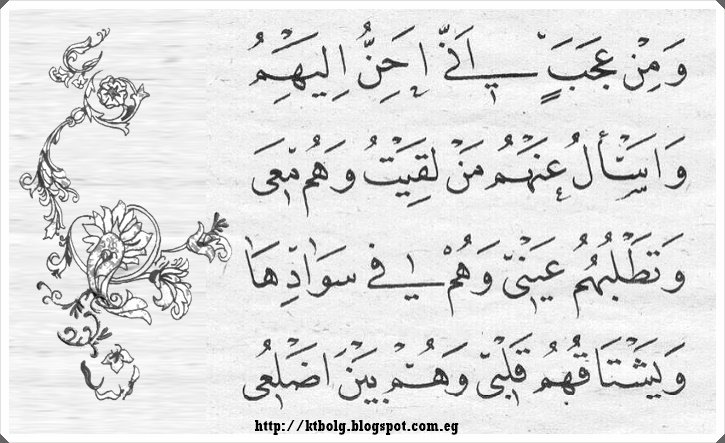 وَمِنْ عَجَبٍ أَنِّي أَحِنُّ إِلَيْهِمُ
وَأَسْأَلُ عَنْهُمْ مَنْ لَقِيتُ وَهُمْ مَعِي
وَتَطْلُبُهُمْ عَيْنِي وَهُمْ فِي سَوَادِهَا
وَيَشْتَاقُهُمْ قَلْبِي وَهُمْ بَيْنَ أَضْلُعِي
http://ktbolg.blogspot.com.eg